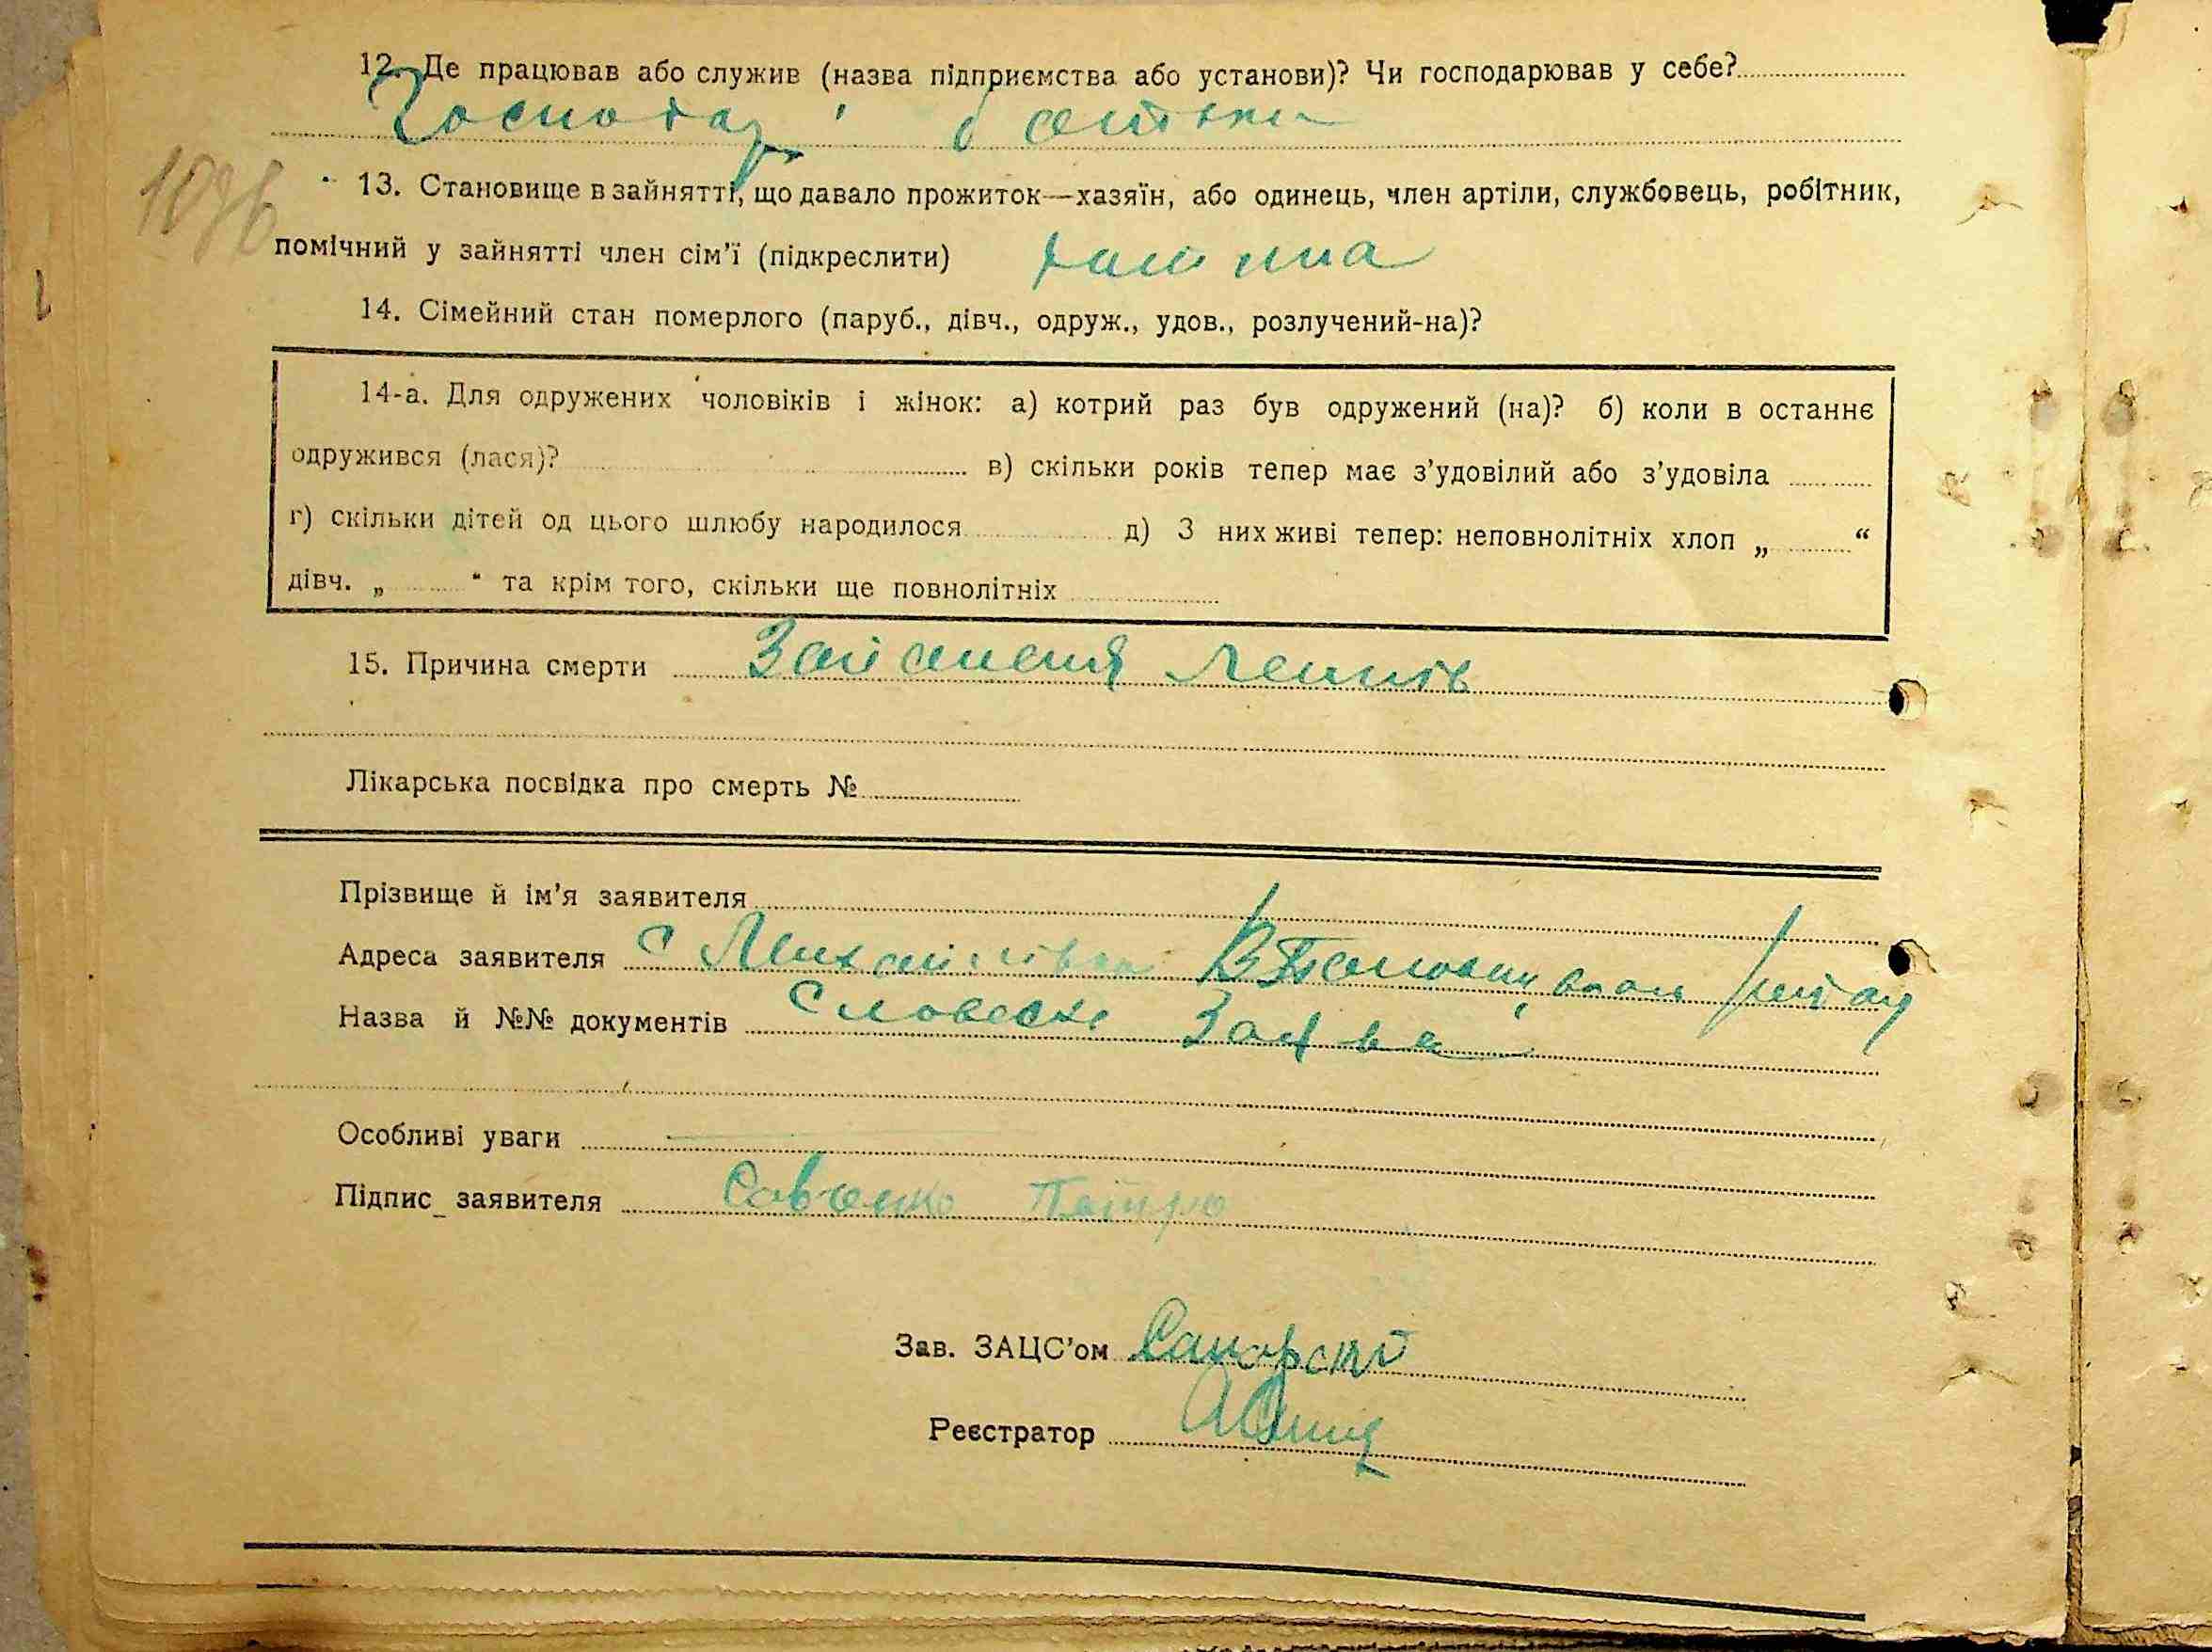 12. Де працював або служив (назва підприємства або установи)? Чи господарював у себе?
Господар батьки
13. Становище в зайнятті, що давало прожиток—хазяїн, або одинець, член артіли, службовець, робітник,
1096
помічний у зайнятті член сім'ї (підкреслити)
14. Сімейний стан померлого (паруб., дівч., одруж., удов., розлучений-на)?
14-а. Для одружених чоловіків і жінок: а) котрий раз був одружений (на)? б) коли в останнє
одружився (лася)? в) скільки років тепер має з'удовілий або з'удовіла
г) скільки дітей од цього шлюбу народилося д) З них живі тепер: неповнолітніх хлоп „ “
дівч. „ “ та крім того, скільки ще повнолітніх
15. Причина смерти Запаленя легнів
Лікарська посвідка про смерть №
Прізвище й ім'я заявителя
Адреса заявителя с Михайлівка
Назва й №№ документів Словесне Заява
Особливі уваги
Підпис заявителя Савенко Петро
Зав. ЗАЦС'ом
Реєстратор